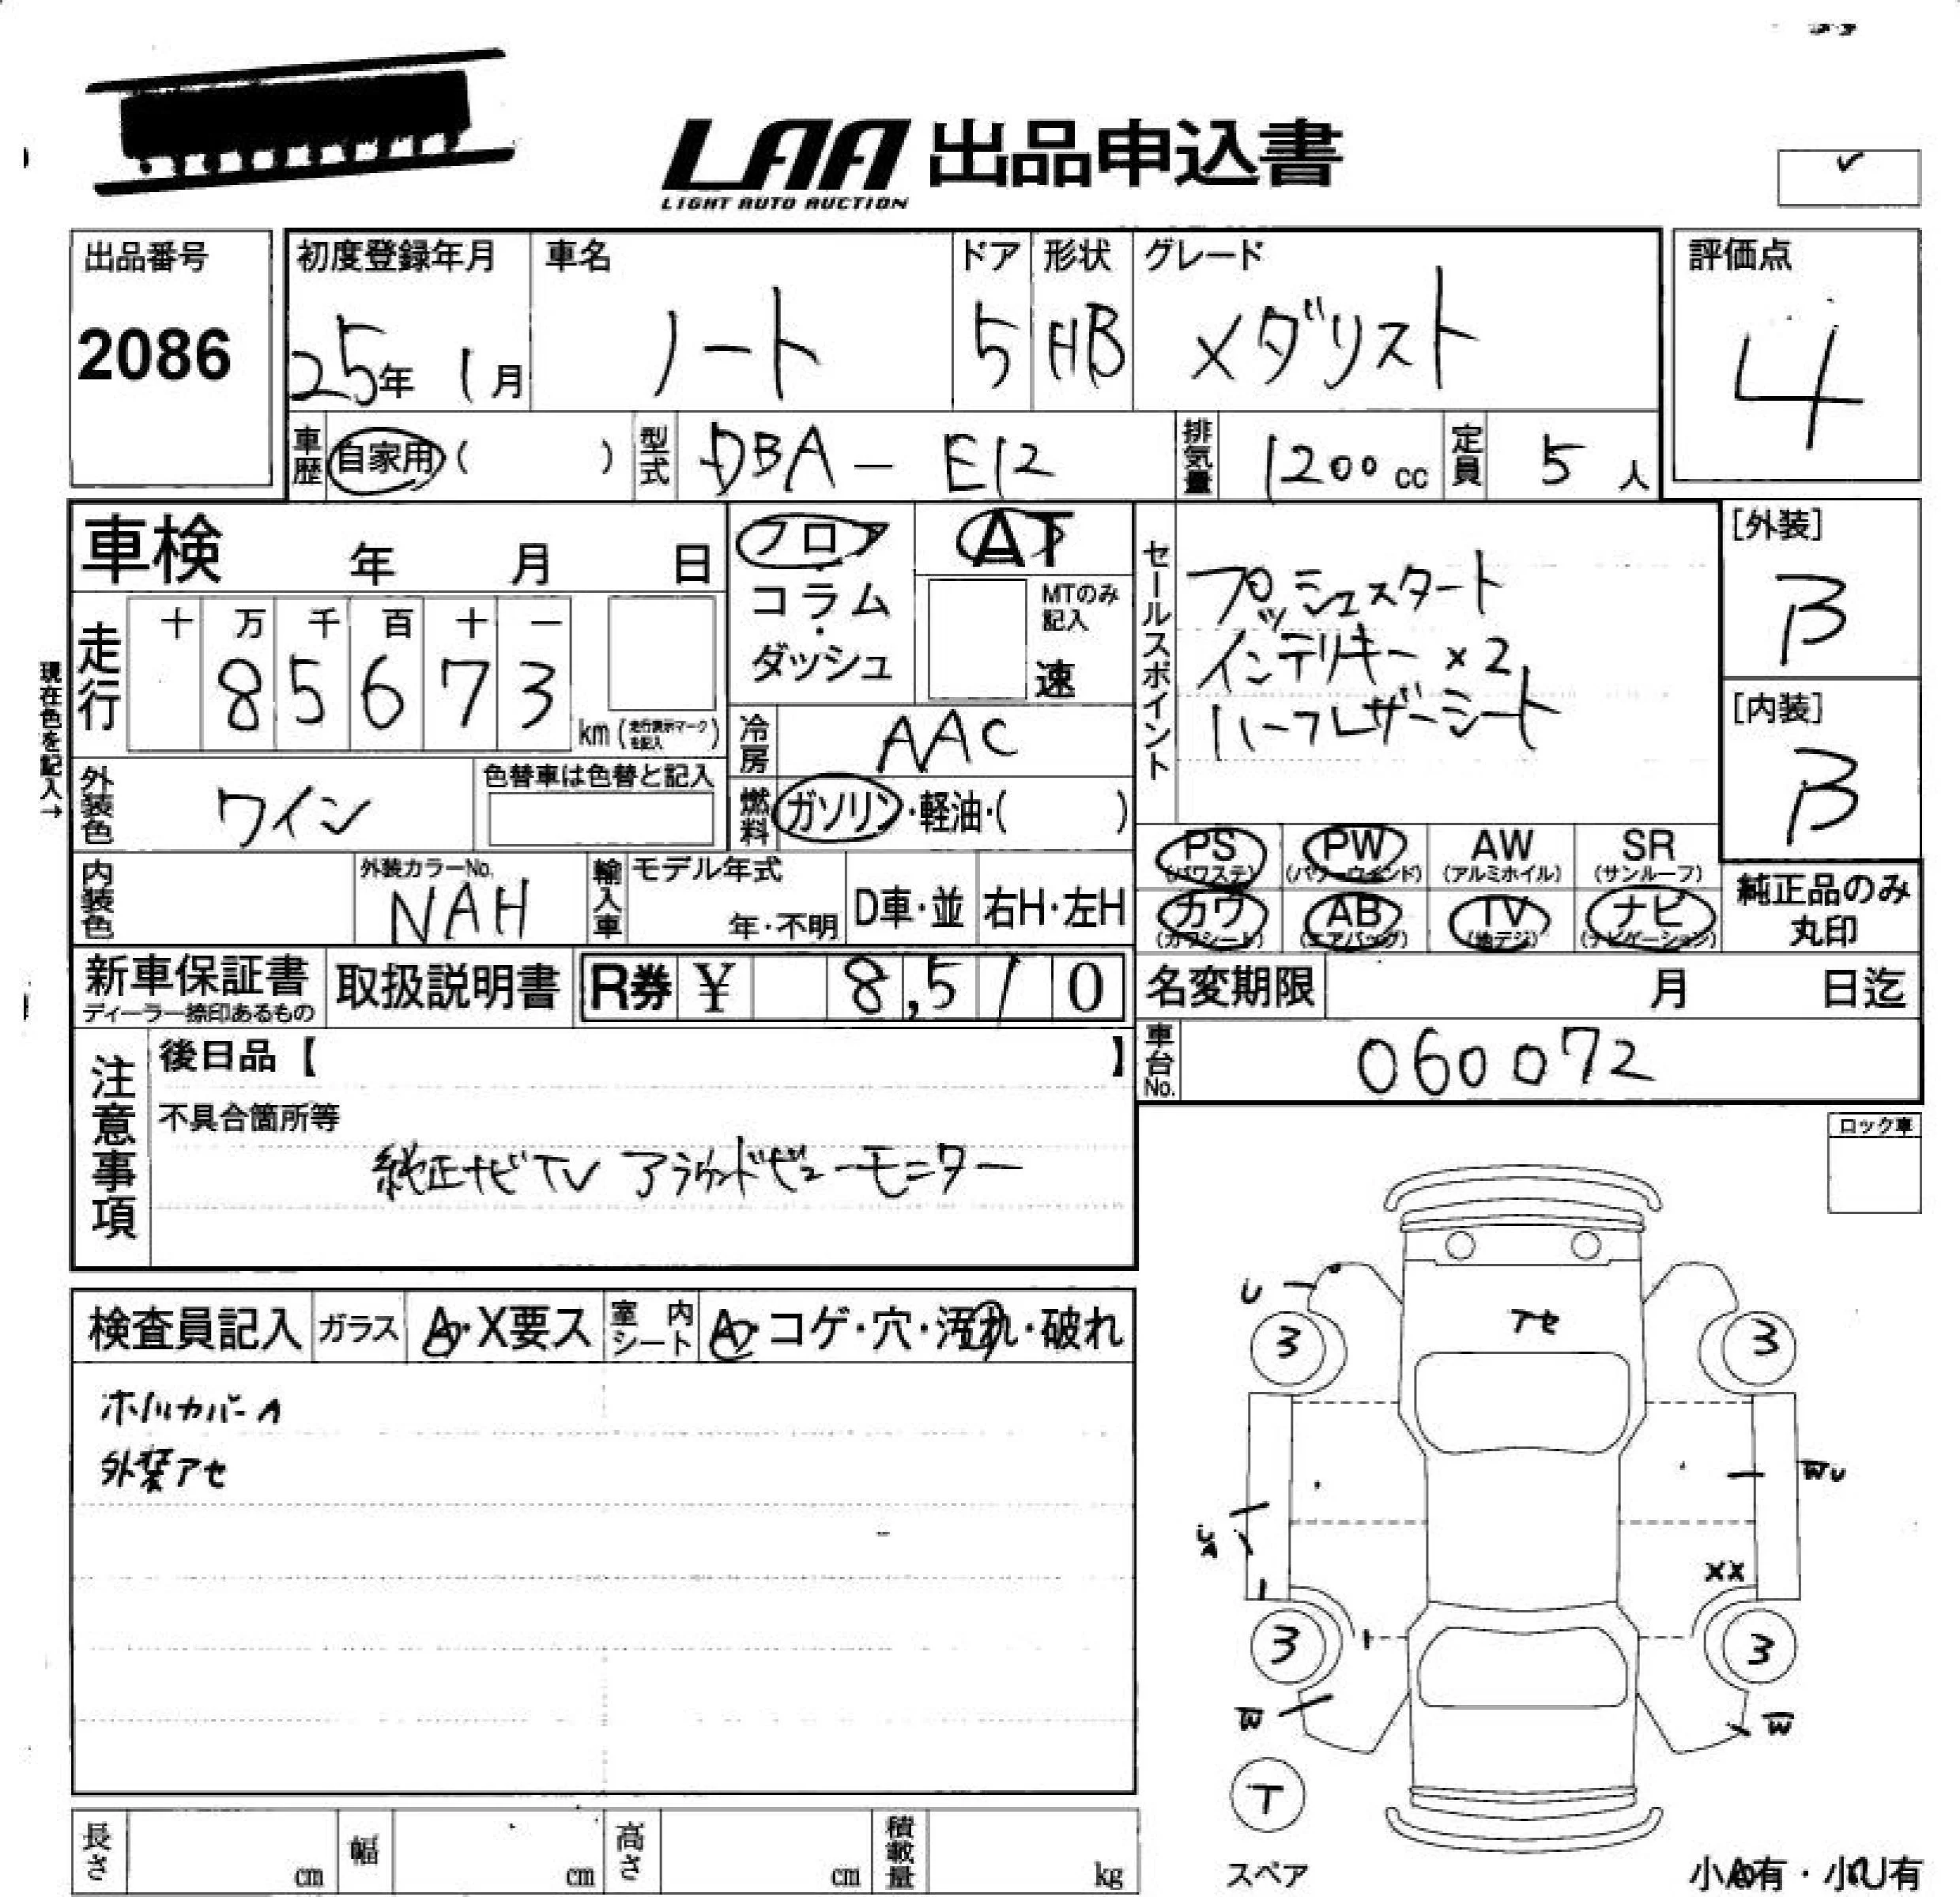 LAA 出品申込書
LIGHT AUTO AUCTION
出品番号
2086
初度登録年月
25年 1月
車名
ノート
ドア
5
形状
HB
グレード
メダリスト
評価点
4
車歴 自家用 ( )
型式 DBA - E12
排気量 1200 cc
定員 5 人
車検 年 月 日
走行 十 万 千 百 十 一
85673 km (走行表示マークを記入)
現在色を記入→
フロア・コラム・ダッシュ
AT
MTのみ記入
速
冷房 AAC
燃料 ガソリン・軽油・( )
セールスポイント
プッシュスタート
インテリキー ×2
ハーフレザーシート
[外装]
B
[内装]
B
外装色 ワイン
色替車は色替と記入
内装色
外装カラーNo.
NAH
輸入車 モデル年式
年・不明 D車・並 右H・左H
PS (パワステ) PW (パワーウィンド) AW (アルミホイル) SR (サンルーフ)
カワ (カワシート) AB (エアバッグ) TV (地デジ) ナビ (ナビゲーション)
純正品のみ丸印
新車保証書
ディーラー捺印あるもの
取扱説明書
R券 ¥ 8,510
名変期限 月 日迄
車台No. 060072
注意事項
後日品【 】
不具合箇所等
純正ナビTV アラウンドビューモニター
ロック車
検査員記入 ガラス A・X要ス 室内シート A・コゲ・穴・汚れ・破れ
ホイルカバーA
外装アセ
U
アセ
3 3
WU
U
A
XX
3 3
W W
T
スペア
小A有・小U有
長さ cm 幅 cm 高さ cm 積載量 kg